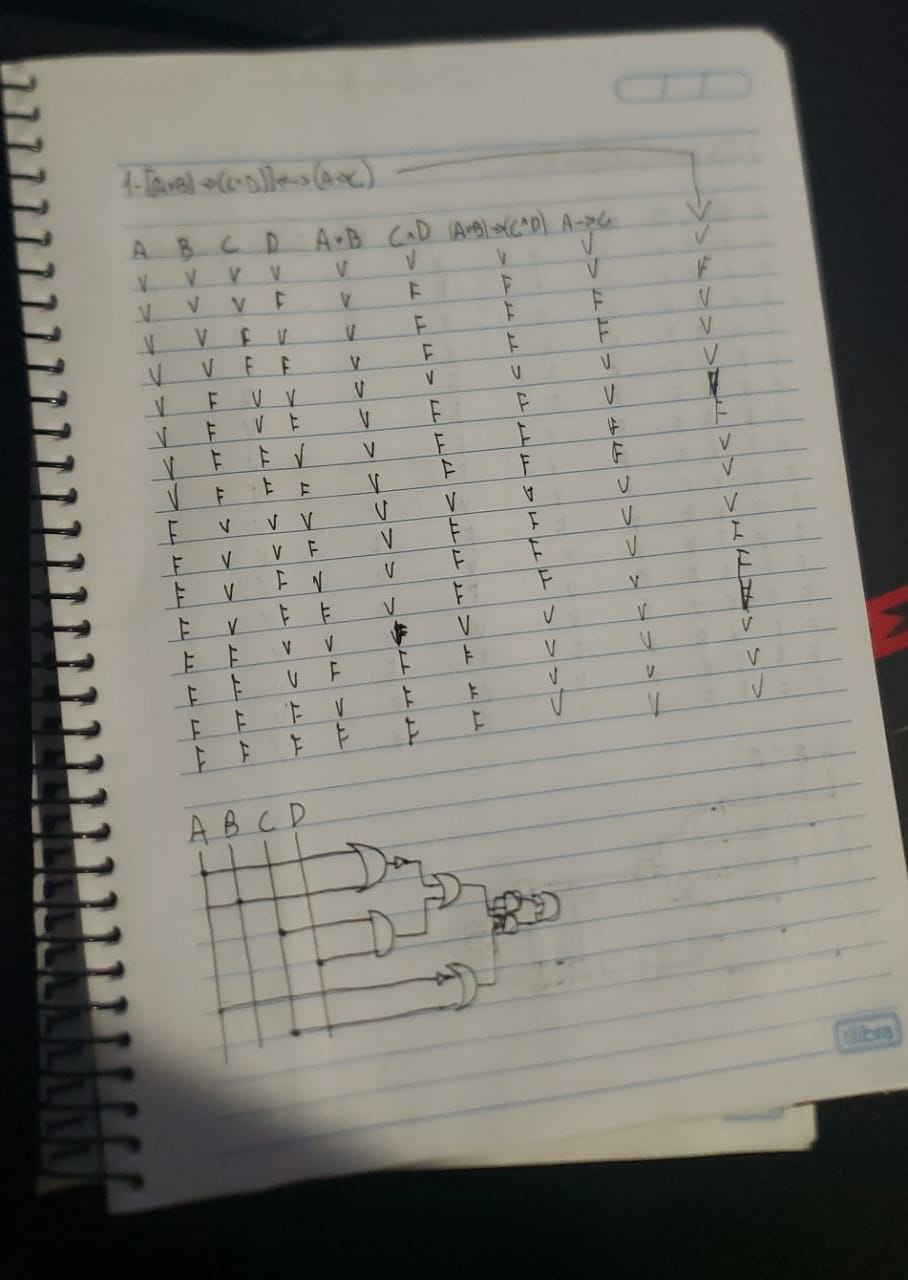 1-[(A∨B)→(C∧D)]↔(A→C)
A B C D A∨B C∧D (A∨B)→(C∧D) A→C
V V V V V V V V V
V V V F V F F V F
V V F V V F F F V
V V F F V F F F V
V F V V V V V V V
V F V F V F F V
V F F V V F F F F
V F F F V F F F V
F V V V V V V V V
F V V F V F F V V
F V F V V F F V F
F V F F V F F V F
F F V V F V V V
F F V F F F V V V
F F F V F F V V V
F F F F F F V V V
A B C D
tilibra